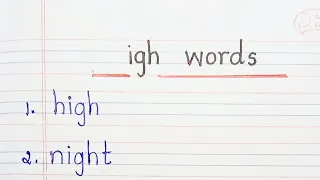 igh words
1. high
2. night